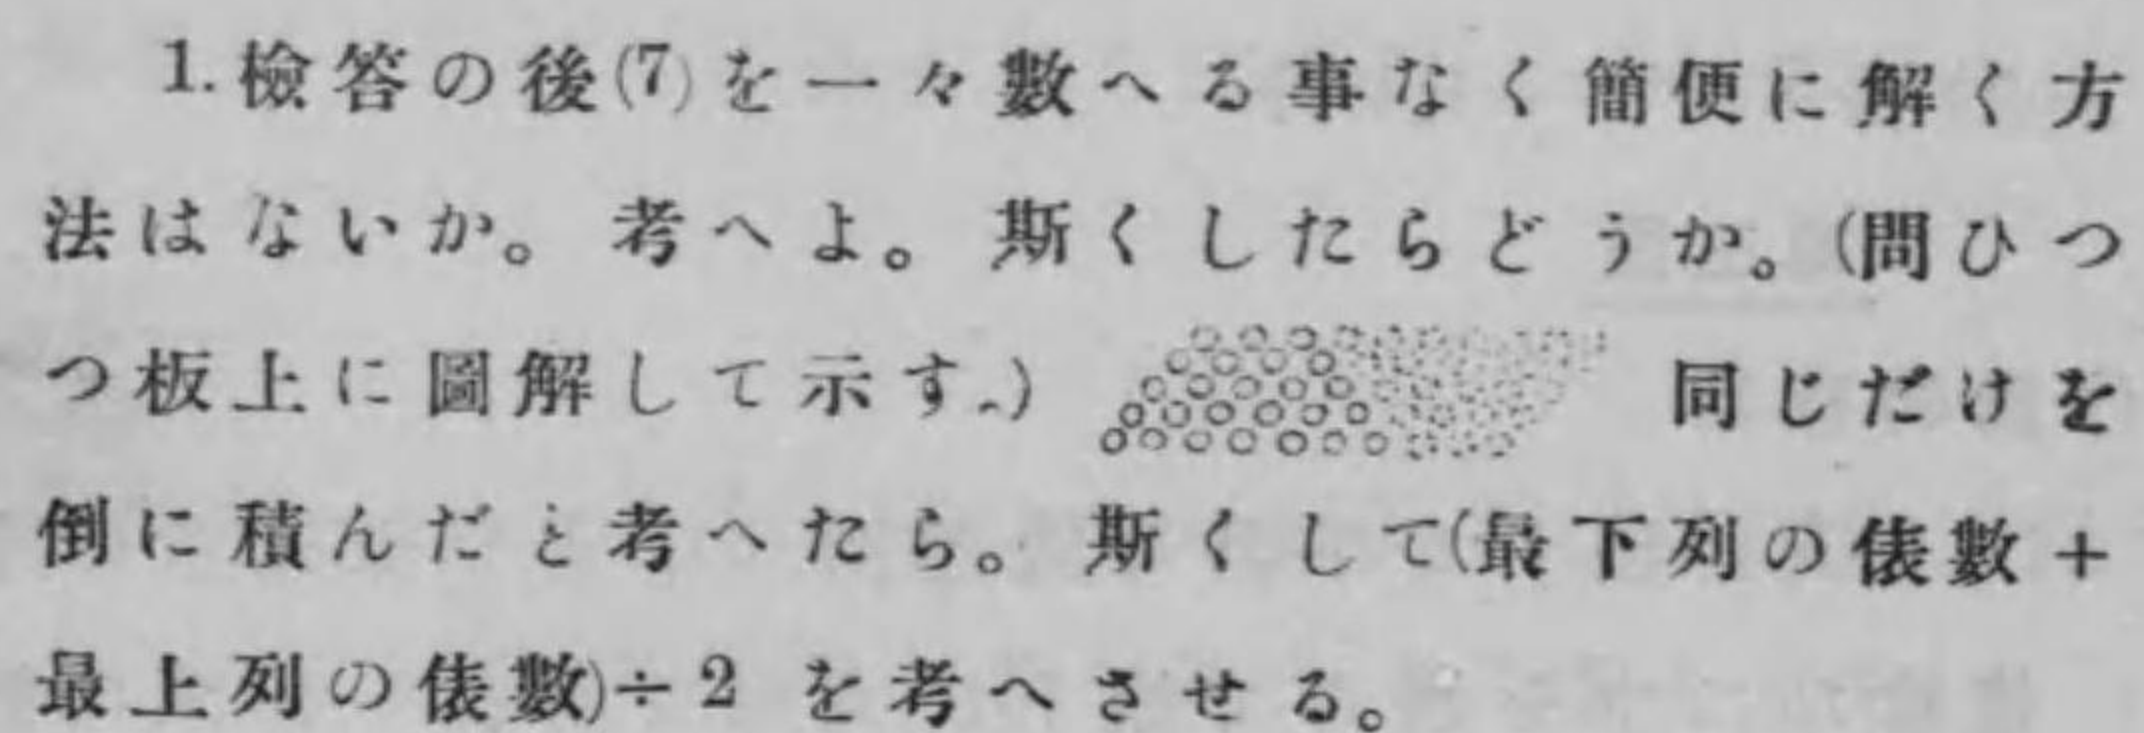 1. 檢答の後(7)を一々數へる事なく簡便に解く方
法はないか。考へよ。斯くしたらどうか。(問ひつ
つ板上に圖解して示す。) 同じだけを
倒に積んだと考へたら。斯くして(最下列の俵數+
最上列の俵數)÷2 を考へさせる。